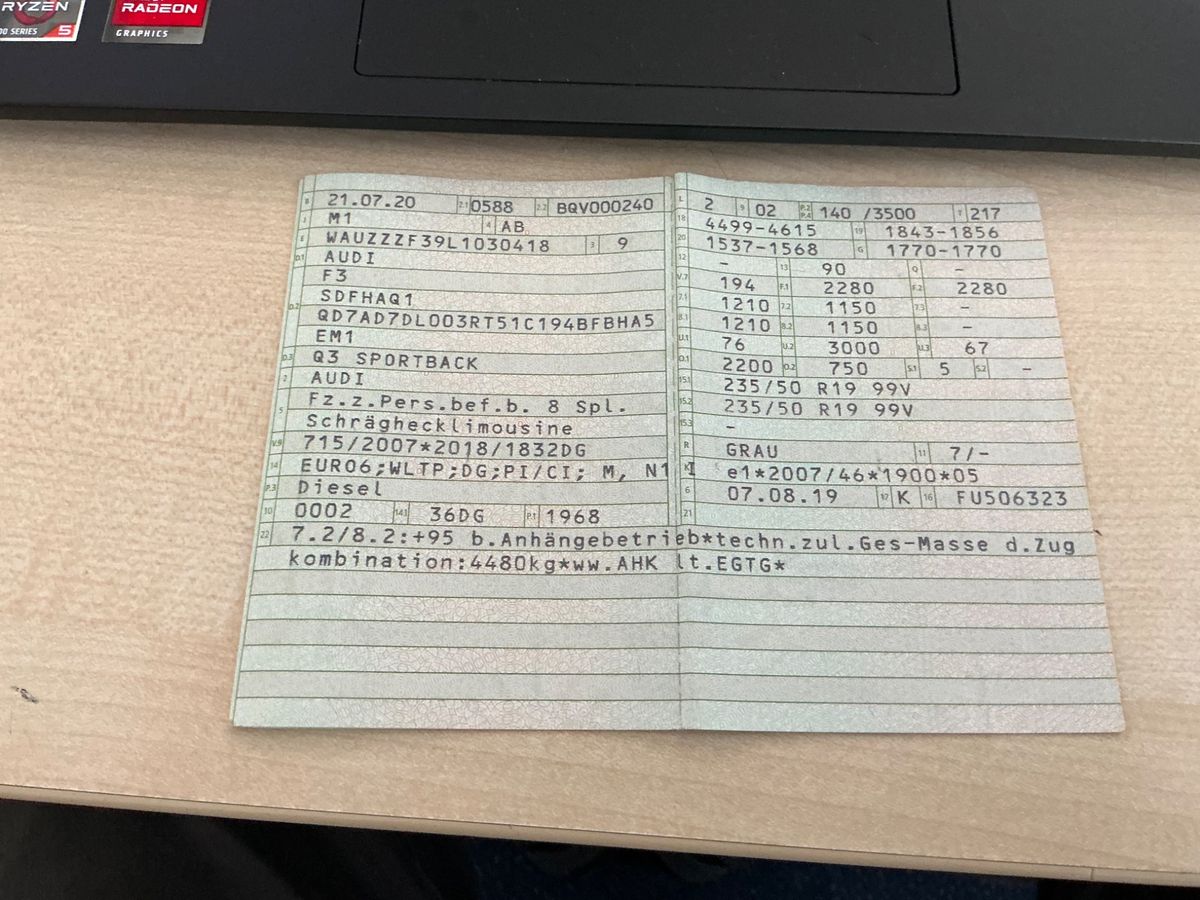 RYZEN
00 SERIES 5
RADEON
GRAPHICS
B 21.07.20 2.1 0588 2.2 BQV000240
J M1 4 AB
E WAUZZZF39L1030418 3 9
D.1 AUDI
F3
D.2 SDFHAQ1
QD7AD7DL003RT51C194BFBHA5
EM1
D.3 Q3 SPORTBACK
2 AUDI
5 Fz.z.Pers.bef.b. 8 Spl.
Schräghecklimousine
V.9 715/2007*2018/1832DG
14 EURO6;WLTP;DG;PI/CI; M, N1 I
P.3 Diesel
10 0002 14.1 36DG P.1 1968
L 2 9 02 P.2 P.4 140 /3500 T 217
18 4499-4615 19 1843-1856
20 1537-1568 G 1770-1770
12 - 13 90 Q -
V.7 194 F.1 2280 F.2 2280
7.1 1210 7.2 1150 7.3 -
8.1 1210 8.2 1150 8.3 -
U.1 76 U.2 3000 U.3 67
O.1 2200 O.2 750 S.1 5 S.2 -
15.1 235/50 R19 99V
15.2 235/50 R19 99V
15.3 -
R GRAU 11 7/-
K e1*2007/46*1900*05
6 07.08.19 17 K 16 FU506323
21
22 7.2/8.2:+95 b.Anhängebetrieb*techn.zul.Ges-Masse d.Zug
kombination:4480kg*ww.AHK lt.EGTG*